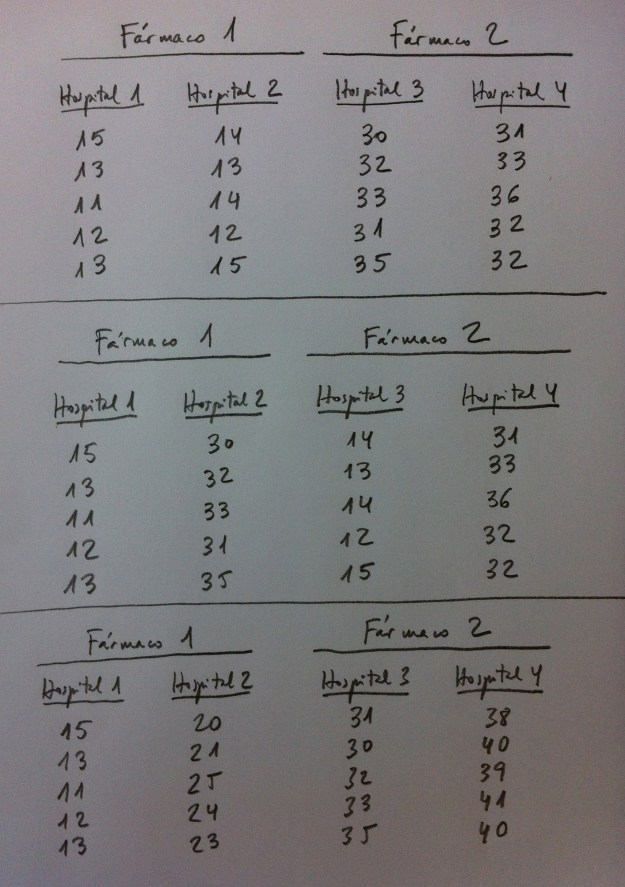 Fármaco 1 Fármaco 2
Hospital 1 Hospital 2 Hospital 3 Hospital 4
15 14 30 31
13 13 32 33
11 14 33 36
12 12 31 32
13 15 35 32
Fármaco 1 Fármaco 2
Hospital 1 Hospital 2 Hospital 3 Hospital 4
15 30 14 31
13 32 13 33
11 33 14 36
12 31 12 32
13 35 15 32
Fármaco 1 Fármaco 2
Hospital 1 Hospital 2 Hospital 3 Hospital 4
15 20 31 38
13 21 30 40
11 25 32 39
12 24 33 41
13 23 35 40